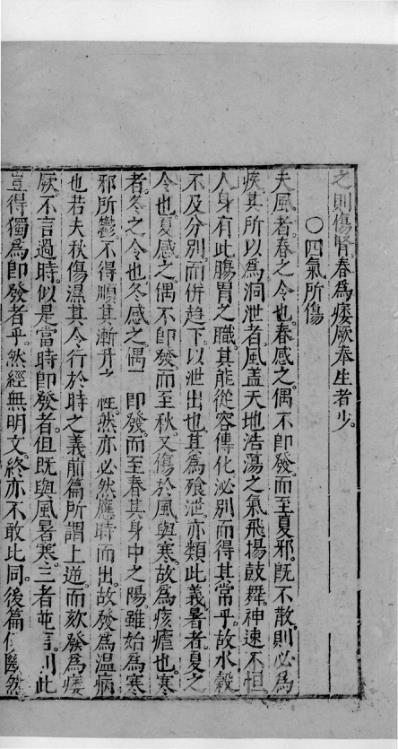 之則傷腎。春為痿厥。奉生者少。
○四氣所傷
夫風者。春之令也。春感之。偶不即發。而至夏。邪既不散。則必為
疾。其所以為洞泄者。風蓋天地浩蕩之氣。飛揚鼓舞。神速不恒。
人身有此腸胃之職。其能從容傳化。泌別而得其常乎。故水穀
不及分別。而併趨下以泄出也。其為飱泄。亦類此義。暑者。夏之
令也。夏感之。偶不即發。而至秋。又傷於風與寒。故為痎瘧也。寒
者。冬之令也。冬感之。偶 即發。而至春。其身中之陽。雖始為寒
邪所鬱。不得順其漸升之 性。然亦必然應時而出。故發為温病
也。若夫秋傷濕。其令行於時之義。前篇所謂上逆而欬。發為痿
厥。不言過時。似是當時即發者。但既與風暑寒。三者並言。則此
豈得獨為即發者乎。然經無明文。終亦不敢比同。後篇 然